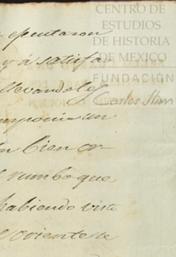 CENTRO DE
ESTUDIOS
DE HISTORIA
DE MEXICO
FUNDACIÓN
Carlos Slim
ejecutaron
y á satisfa
llevandole
imponia un
bien or
rumbo que
habiendo visto
el oriente de